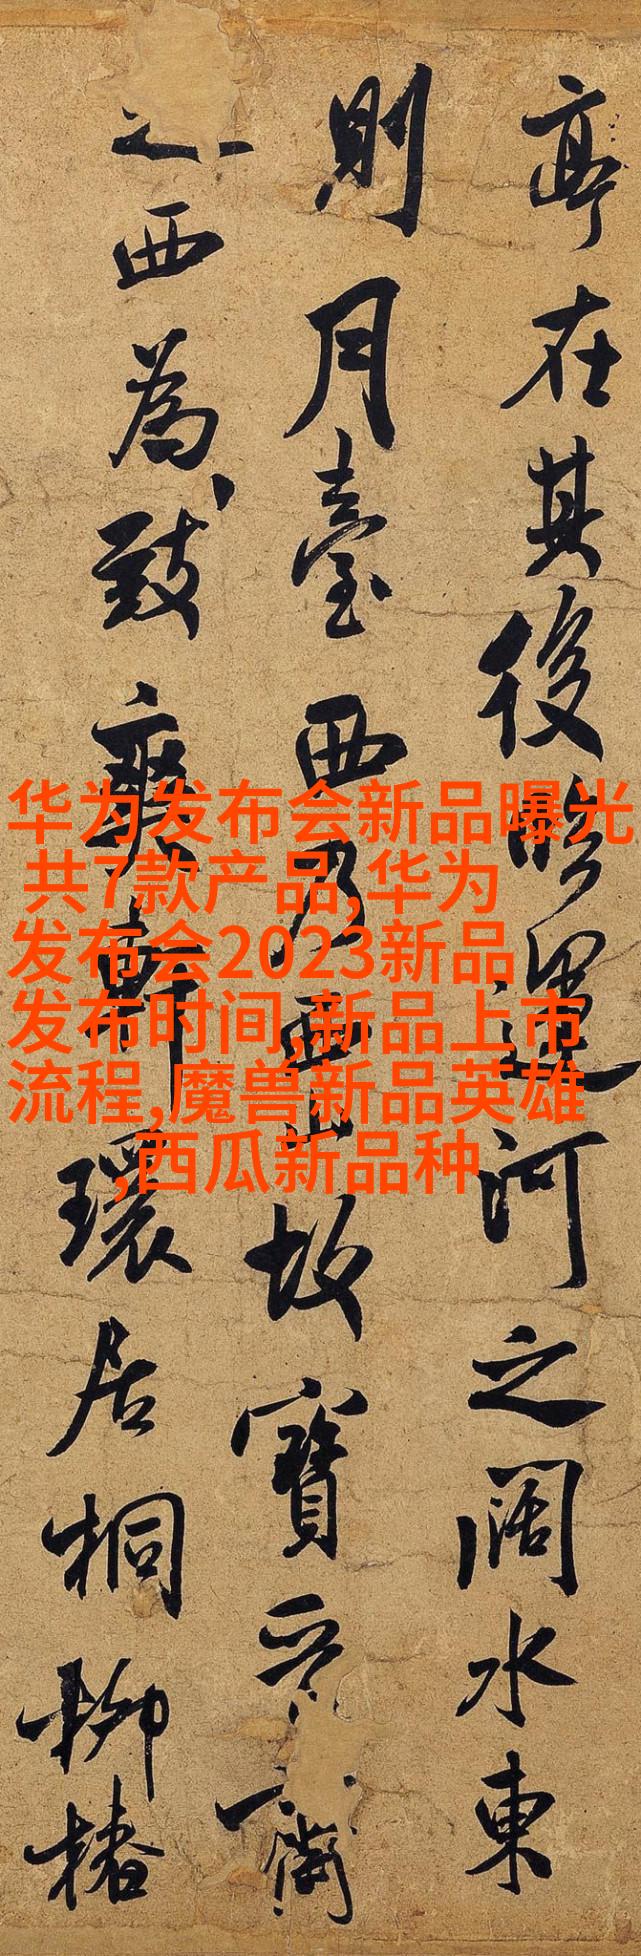 亭在其後臨運河之闊水東
則月臺西乃西山故寶晉齋
之西為致爽軒環居桐柳椿
华为发布会新品曝光
共7款产品,华为
发布会2023新品
发布时间,新品上市
流程,魔兽新品英雄
,西瓜新品种